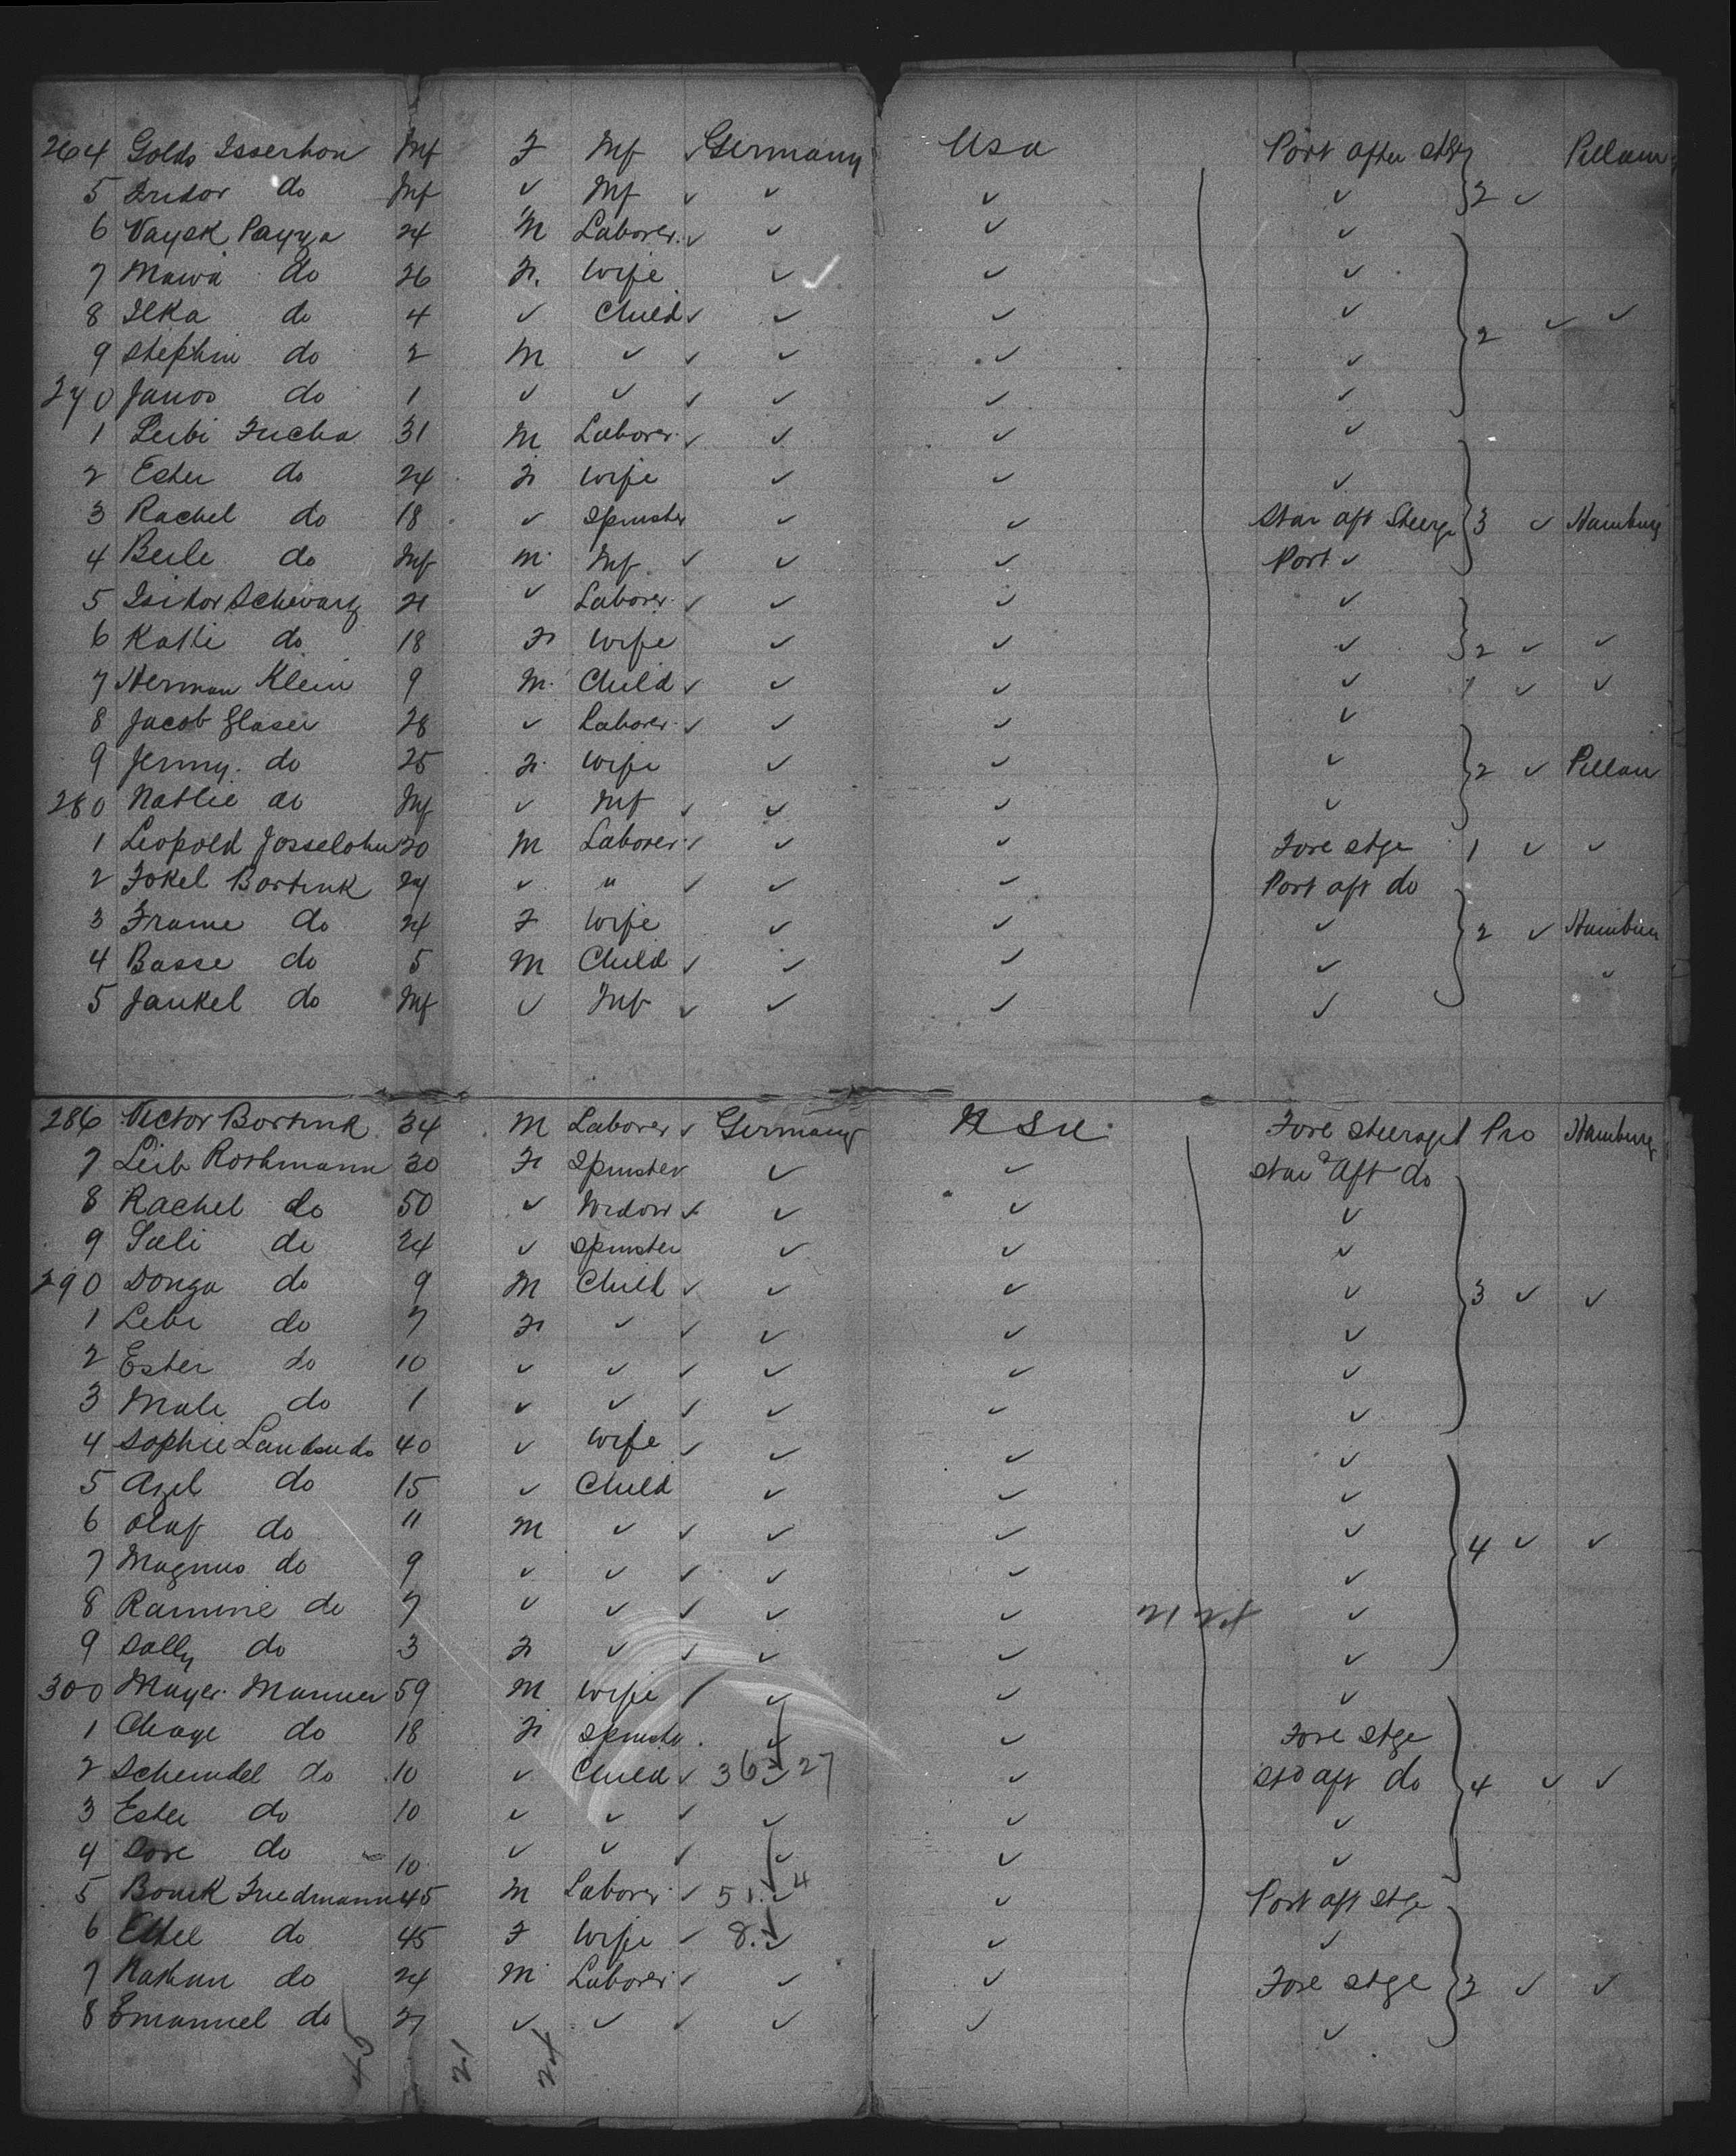 264 Golds Isserhon Inf F Inf ✓ Germany Usa Port after stge Pillau
5 do Inf ✓ Inf ✓ ✓ ✓ ✓ 2 ✓
6 Vaysk Payya 24 M Laborer ✓ ✓ ✓ ✓
7 Mawa do 26 F. Wife ✓ ✓ ✓
8 Ilka do 4 ✓ Child ✓ ✓ ✓ ✓ 2 ✓ ✓
9 Stephin do 2 M ✓ ✓ ✓ ✓ ✓
270 Janos do 1 ✓ ✓ ✓ ✓ ✓ ✓
1 Leibi Fuchs 31 M Laborer ✓ ✓ ✓ ✓
2 Ester do 24 F Wife ✓ ✓ ✓
3 Rachel do 18 ✓ Spinster ✓ ✓ Star aft Steerge 3 ✓ Hamburg
4 Beile do Inf M Inf ✓ ✓ ✓ Port ✓
5 Isidor Schwarz 21 ✓ Laborer ✓ ✓ ✓ ✓
6 Katti do 18 F Wife ✓ ✓ ✓ 2 ✓ ✓
7 Herman Klein 9 M Child ✓ ✓ ✓ ✓ 1 ✓ ✓
8 Jacob Glaser 28 ✓ Laborer ✓ ✓ ✓ ✓
9 Jenny do 25 F Wife ✓ ✓ ✓ 2 ✓ Pillau
280 Natlie do Inf ✓ Inf ✓ ✓ ✓ ✓
1 Leopold Josselohn 20 M Laborer ✓ ✓ ✓ Fore stge 1 ✓ ✓
2 Fokel Bortink 24 ✓ " ✓ ✓ ✓ Port aft do
3 Frame do 24 F Wife ✓ ✓ ✓ 2 ✓ Hamburg
4 Basse do 5 M Child ✓ ✓ ✓ ✓ ✓
5 Jankel do Inf ✓ Inf ✓ ✓ ✓ ✓
286 Victor Bortink 34 M Laborer ✓ Germany Usa Fore steerage 1 Pro Hamburg
7 Leib Rothmann 30 F Spinster ✓ ✓ Star Aft do
8 Rachel do 50 ✓ Widow ✓ ✓ ✓ ✓
9 Sali do 24 ✓ Spinster ✓ ✓ ✓
290 Donga do 9 M Child ✓ ✓ ✓ ✓ 3 ✓ ✓
1 Lebi do 7 F ✓ ✓ ✓ ✓ ✓
2 Ester do 10 ✓ ✓ ✓ ✓ ✓ ✓
3 Mali do 1 ✓ ✓ ✓ ✓ ✓ ✓
4 Sophie do 40 ✓ Wife ✓ ✓ ✓ ✓
5 Azel do 15 ✓ Child ✓ ✓ ✓
6 Olaf do 11 M ✓ ✓ ✓ ✓ ✓ 4 ✓ ✓
7 Magnus do 9 ✓ ✓ ✓ ✓ ✓ ✓
8 Ramine do 7 ✓ ✓ ✓ ✓ ✓ 21 24 ✓
9 Sally do 3 F ✓ ✓ ✓ ✓ ✓
300 Mayer Manner 59 M Wife ✓ ✓ ✓
1 Chaye do 18 F Spinster ✓ ✓ Fore stge
2 Scheindel do 10 ✓ Child ✓ 36 ✓ 27 ✓ Std aft do 4 ✓ ✓
3 Ester do 10 ✓ ✓ ✓ ✓ ✓ ✓
4 Dore do 10 ✓ ✓ ✓ ✓ ✓ ✓
5 Bouik Friedmann 45 M Laborer ✓ 51 ✓ 4 ✓ Port aft stge
6 Ettel do 45 F Wife ✓ 8. ✓ ✓ ✓
7 Nathan do 24 M Laborer ✓ ✓ ✓ Fore stge 3 ✓ ✓
8 Emanuel do 27 ✓ ✓ ✓ ✓ ✓ ✓
45 21 24